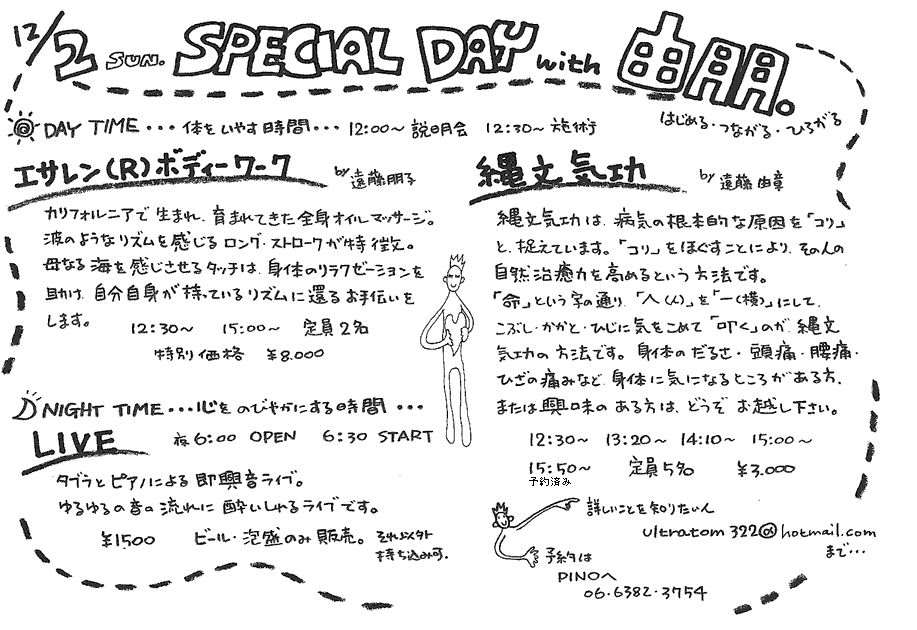 12/2 SUN. SPECIAL DAY with 由朋。
はじめる・つながる・ひろがる
DAY TIME・・・体をいやす時間・・・12:00〜 説明会 12:30〜 施術
エサレン(R)ボディーワーク by 遠藤朋子
カリフォルニアで生まれ、育まれてきた全身オイルマッサージ。
波のようなリズムを感じるロング・ストロークが特徴。
母なる海を感じさせるタッチは、身体のリラクゼーションを
助け、自分自身が持っているリズムに還るお手伝いを
します。
12:30〜 15:00〜 定員2名
特別価格 ¥8.000
縄文気功 by 遠藤由章
縄文気功は、病気の根本的な原因を「コリ」
と、捉えています。「コリ」をほぐすことにより、その人の
自然治癒力を高めるという方法です。
「命」という字の通り、「人(人)」を「一(横)」にして、
こぶし・かかと・ひじに気をこめて「叩く」のが、縄文
気功の方法です。身体のだるさ・頭痛・腰痛・
ひざの痛みなど、身体に気になるところがある方、
または興味のある方は、どうぞお越し下さい。
12:30〜 13:20〜 14:10〜 15:00〜
15:50〜 定員5名 ¥3.000
予約済み
NIGHT TIME・・・心をのびやかにする時間・・・
LIVE 夜6:00 OPEN 6:30 START
タブラとピアノによる即興音ライブ。
ゆるゆるの音の流れに酔いしれるライブです。
¥1500 ビール・泡盛のみ販売。それ以外
持ち込み可。
詳しいことを知りたい人
ultratom322@hotmail.com
まで…
予約は
PINOへ
06・6382・3754